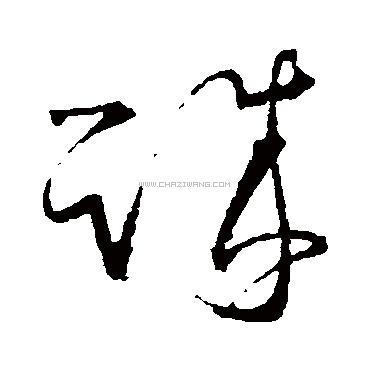 殊
WWW.CHAZIWANG.COM